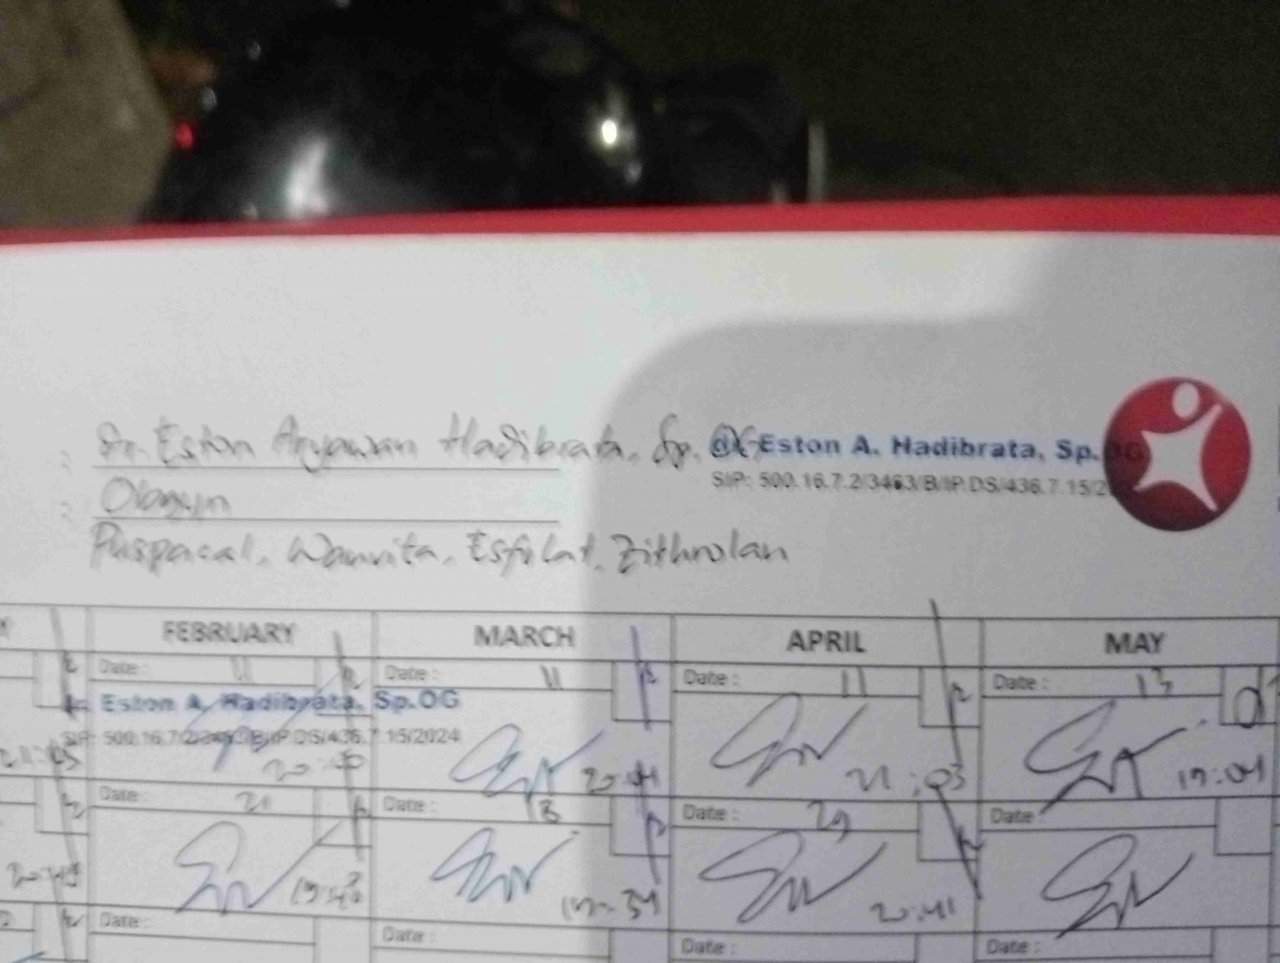 : Dr. Eston Aryawan Hadibrata, Sp. OG Eston A. Hadibrata, Sp.OG
SIP: 500.16.7.2/3463/B/IP.DS/436.7.15/2
:
Puspacal, Wanvita, Esfolat, Zithrolan
FEBRUARY MARCH APRIL MAY
Date : 11 Date : 11 Date : 11 Date : 13
Eston A. Hadibrata, Sp.OG
SIP: 500.16.7.2/3463/B/IP.DS/436.7.15/2024
20:40 20:41 21:03 17:01
Date : 21 Date : 18 Date : 29 Date
20:41
Date : Date : Date : Date :